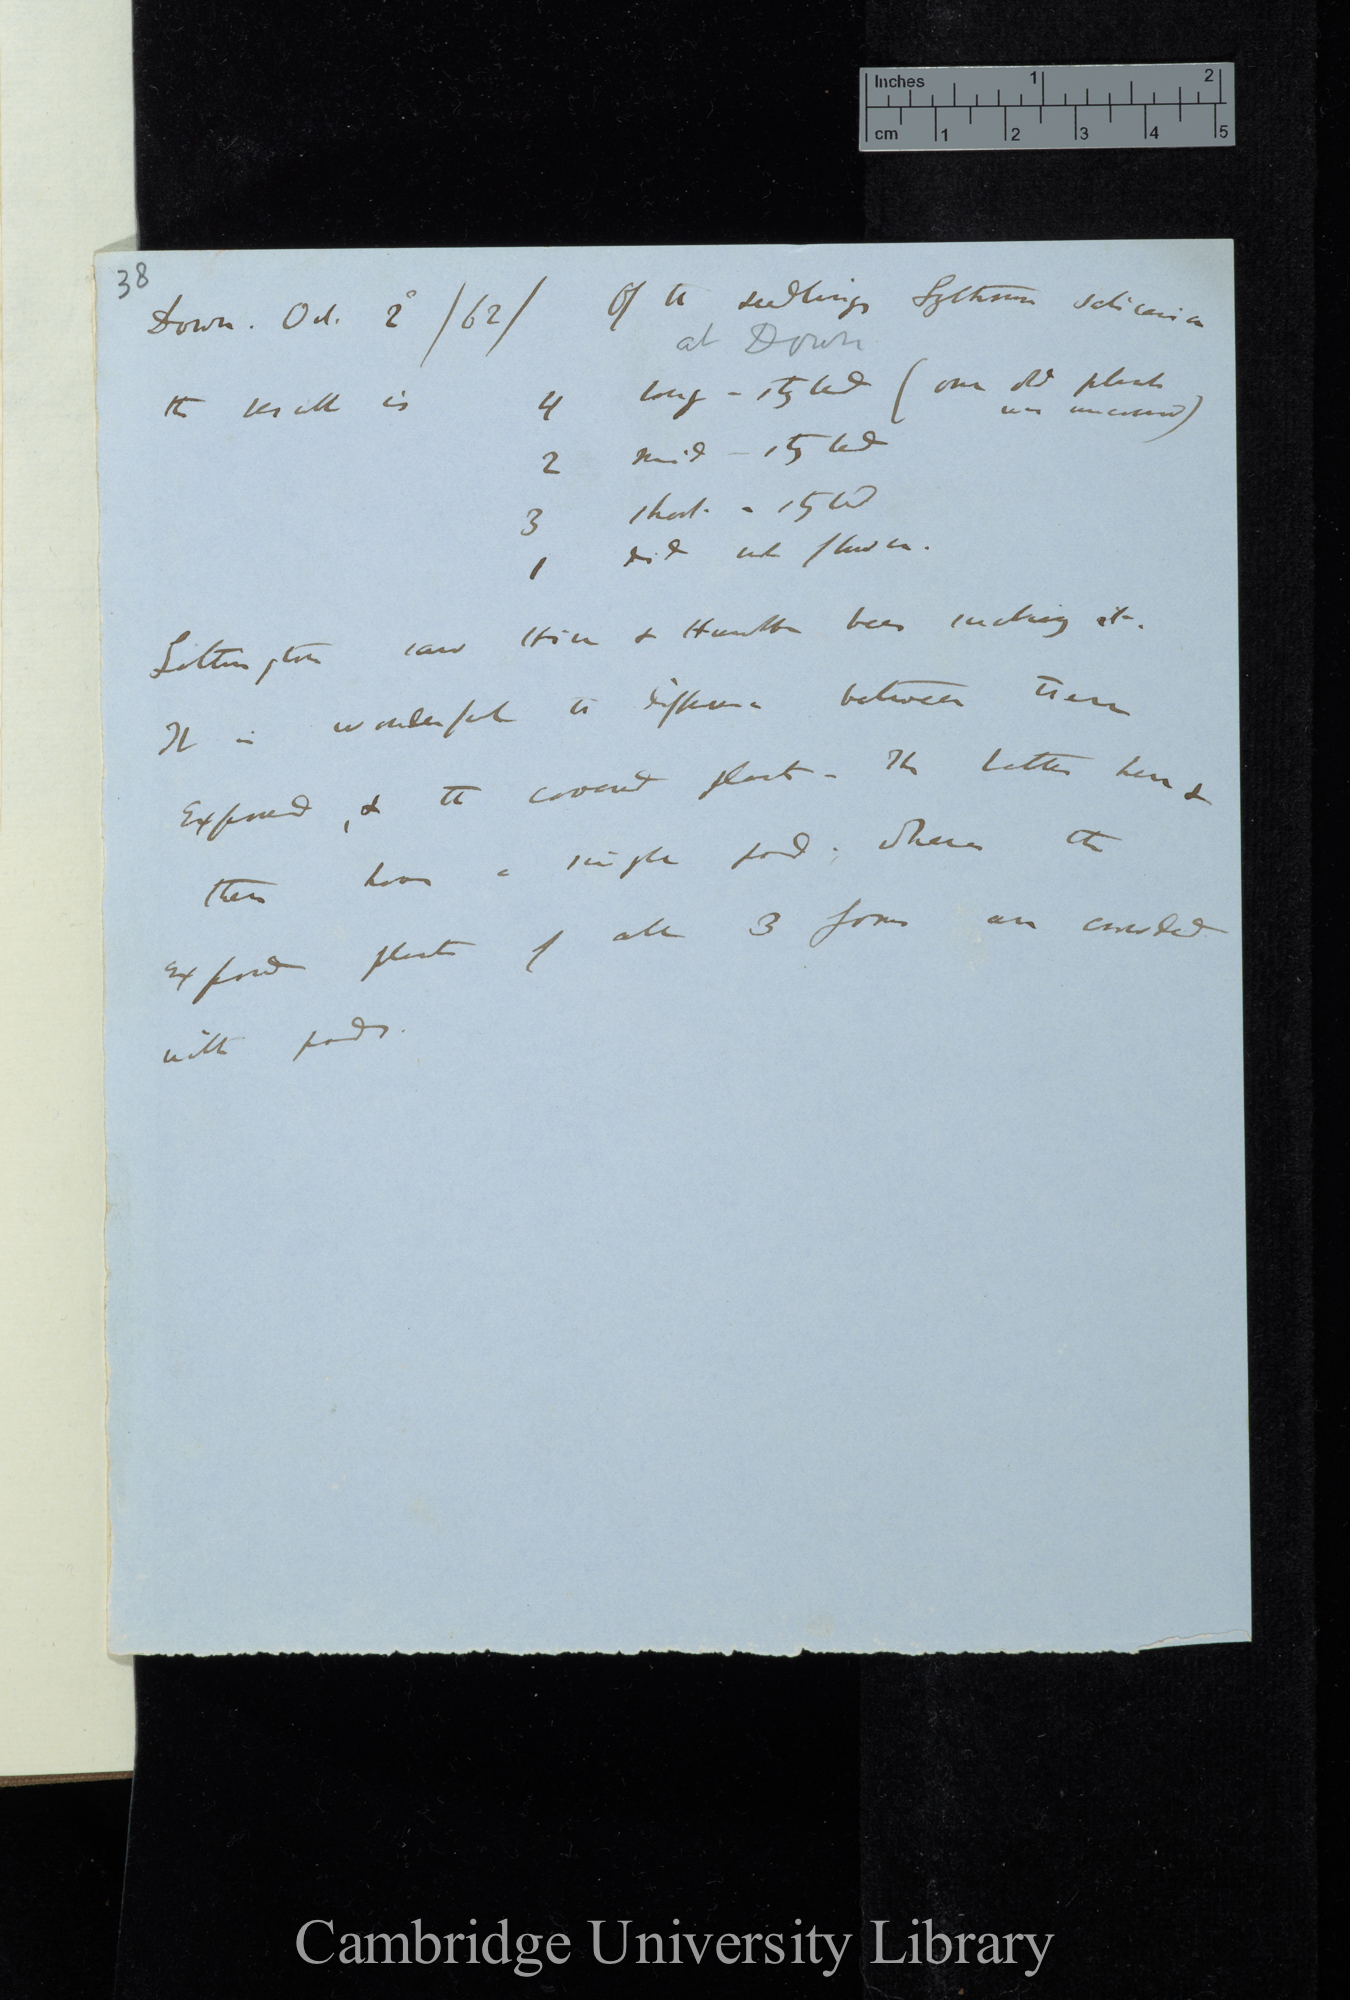 Inches 1 2
cm 1 2 3 4 5
38
Down. Oct. 2° /62/ Of the seedlings Lythrum salicaria
at Down
the result is 4 long-styled (one old plant
was uncovered)
2 mid-styled
3 short-styled
1 did not flower.
Lettington saw Hive & Humble bees sucking it.
It is wonderful the difference between them
exposed, & the covered plant - The latter here &
there have a single pod; whereas the
exposed plants of all 3 forms are crowded
with pods.
Cambridge University Library